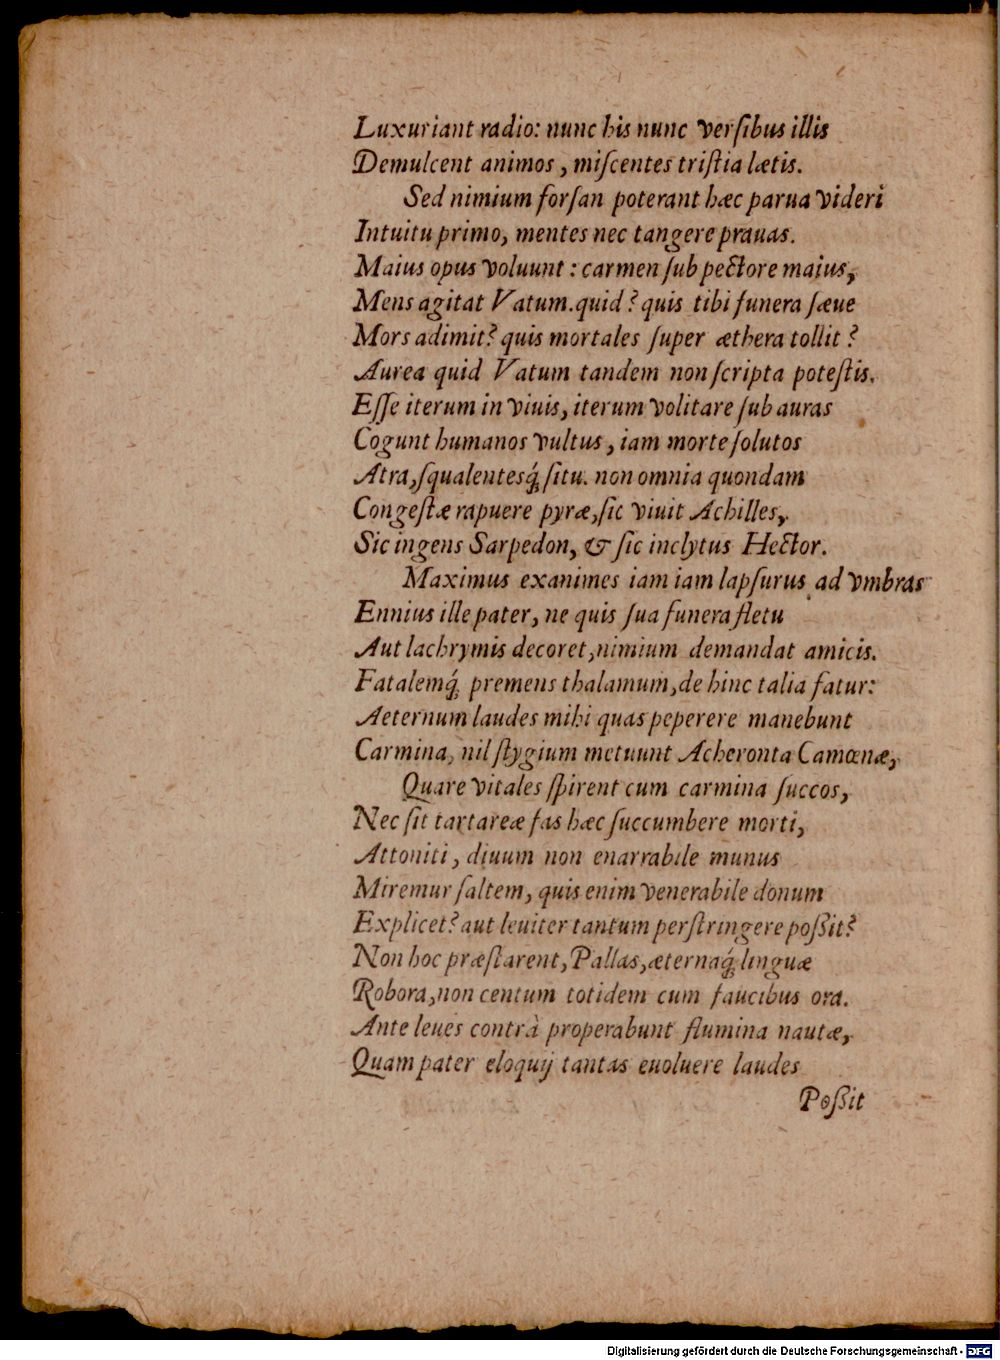 Luxuriant radio: nunc his nunc verſibus illis
Demulcent animos, miſcentes triſtia lætis.
Sed nimium forſan poterant hæc parua videri
Intuitu primo, mentes nec tangere prauas.
Maius opus voluunt: carmen ſub pectore maius,
Mens agitat Vatum. quid? quis tibi funera ſæue
Mors adimit? quis mortales ſuper æthera tollit?
Aurea quid Vatum tandem non ſcripta poteſtis.
Eſſe iterum in viuis, iterum volitare ſub auras
Cogunt humanos vultus, iam morte ſolutos
Atra, ſqualentesq́; ſitu. non omnia quondam
Congeſtæ rapuere pyræ, ſic viuit Achilles,
Sic ingens Sarpedon, & ſic inclytus Hector.
Maximus exanimes iam iam lapſurus ad vmbras
Ennius ille pater, ne quis ſua funera fletu
Aut lachrymis decoret, nimium demandat amicis.
Fatalemq́; premens thalamum, de hinc talia fatur:
Aeternum laudes mihi quas peperere manebunt
Carmina, nil ſtygium metuunt Acheronta Camœnæ,
Quare vitales ſpirent cum carmina ſuccos,
Nec ſit tartareæ fas hæc ſuccumbere morti,
Attoniti, diuum non enarrabile munus
Miremur ſaltem, quis enim venerabile donum
Explicet? aut leuiter tantum perſtringere poßit?
Non hoc præſtarent, Pallas, æternaq́; linguæ
Robora, non centum totidem cum faucibus ora.
Ante leues contrà properabunt flumina nautæ,
Quam pater eloquij tantas euoluere laudes
Poßit
Digitalisierung gefördert durch die Deutsche Forschungsgemeinschaft - DFG